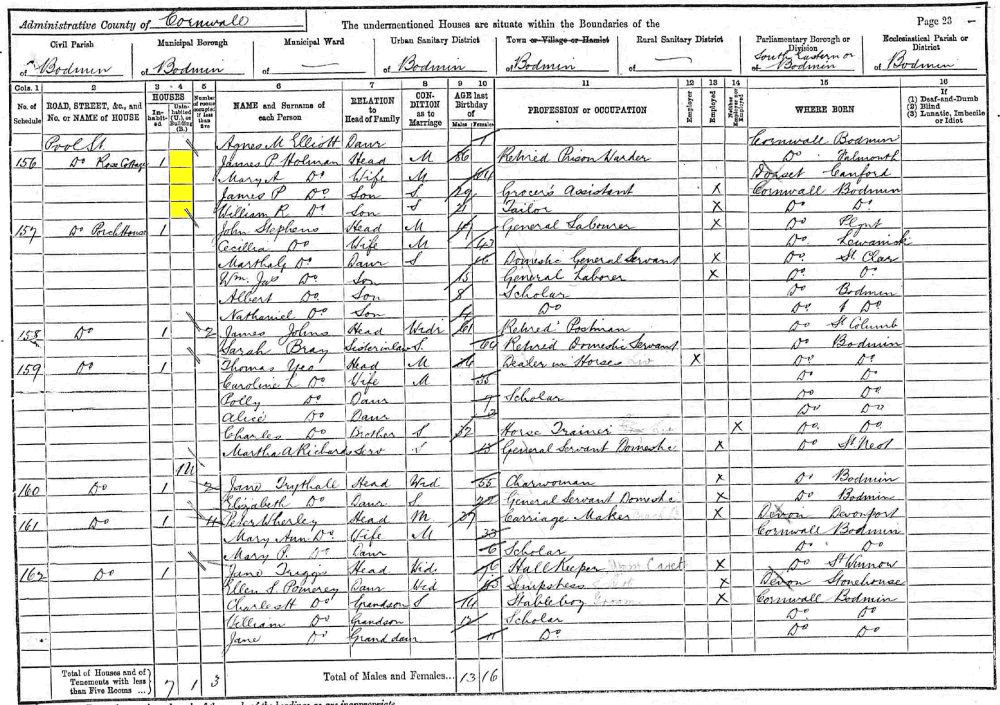 Administrative County of Cornwall The undermentioned Houses are situate within the Boundaries of the Page 23
Civil Parish Municipal Borough Municipal Ward Urban Sanitary District Town or Village or Hamlet Rural Sanitary District Parliamentary Borough or Division Ecclesiastical Parish or District
of Bodmin of Bodmin of — of Bodmin of Bodmin of — of South Eastern or Bodmin of Bodmin
Cols. 1 2 3 4 5 6 7 8 9 10 11 12 13 14 15 16
No. of Schedule ROAD, STREET, &c., and No. or NAME of HOUSE HOUSES Inhabited Uninhabited (U.), or Building (B.) Number of rooms occupied if less than five NAME and Surname of each Person RELATION to Head of Family CONDITION as to Marriage AGE last Birthday of Males Females PROFESSION or OCCUPATION Employer Employed Neither Employer nor Employed WHERE BORN If (1) Deaf-and-Dumb (2) Blind (3) Lunatic, Imbecile or Idiot
Pool St Agnes M Elliott Daur 1 Cornwall Bodmin
156 Do Rose Cottage 1 James P Holman Head M 86 Retired Prison Warder Do Falmouth
Mary A Do Wife M 64 Dorset Canford
James P Do Son S 29 Grocer's Assistant X Cornwall Bodmin
William R Do Son S 21 Tailor X Do Do
157 Do Porch House 1 John Stephens Head M General Labourer X Do
Cecillia Do Wife M 43 Do Lewanick
Martha Do Daur S 16 Domestic General Servant X Do St Clar
Wm. Jas Do Son 15 General Laborer X Do Do
Albert Do Son 8 Scholar Do Bodmin
Nathaniel Do Son 4 Do Do Do
158 Do 1 2 James Johns Head Widr 61 Retired Postman Do St Columb
Sarah Bray Sister in law S 64 Retired Domestic Servant Do Bodmin
159 Do 1 Thomas Yeo Head M Dealer in Horses X Do Do
Caroline L Do Wife M 35 Do Do
Polly Do Daur 7 Scholar Do Do
Alice Do Daur 2 Do Do
Charles Do Brother S 32 Horse Trainer X Do Do
Martha A Richards Serv 13 General Servant Domestic X Do St Neot
1U
160 Do 1 2 Jane Trythall Head Wid 55 Charwoman X Do Bodmin
Elizabeth Do Daur S 22 General Servant Domestic X Do Bodmin
161 Do 1 4 Peter Wherley Head M 37 Carriage Maker X Devon Devonport
Mary Ann Do Wife M 33 Cornwall Bodmin
Mary P. Do Daur 6 Scholar Do Do
162 Do 1 Jane Triggs Head Wid 76 Hall Keeper X Do St Winnow
Ellen S. Pomerey Daur Wid 45 Sempstress X Devon Stonehouse
Charles H Do Grandson S 14 Stableboy Groom X Cornwall Bodmin
William Do Grandson 12 Scholar Do Do
Jane Do Grand daur 11 Do Do Do
Total of Houses and of Tenements with less than Five Rooms ... 7 1 3 Total of Males and Females... 13 16